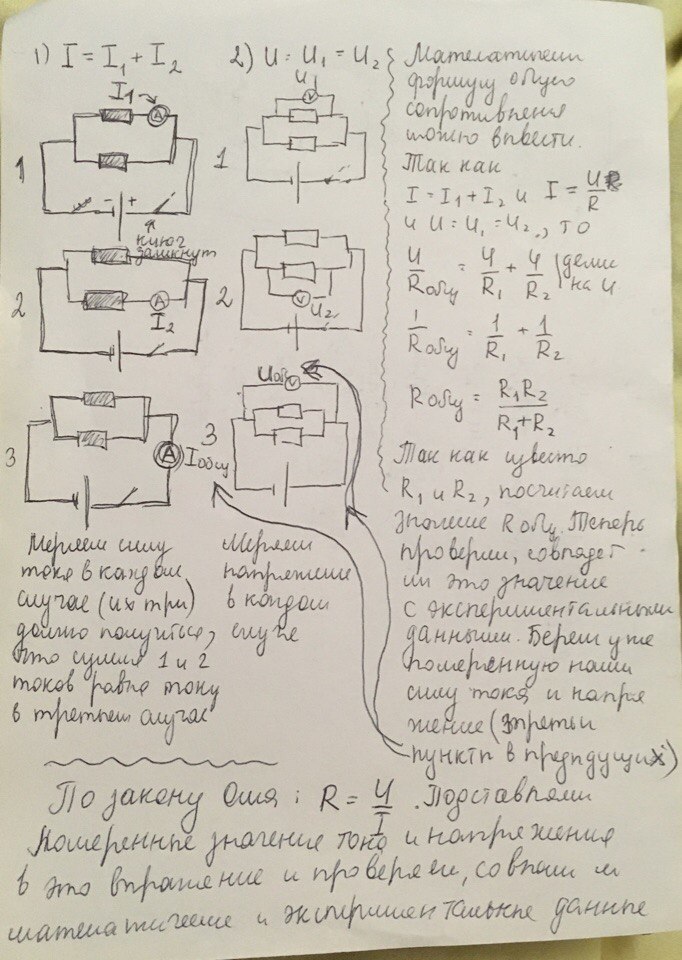 1) I = I₁ + I₂
I₁
A
1
- +
ключ
замкнут
2
A
I₂
3
A
Iобщ
Меряем силу
тока в каждом
случае (их три)
должно получиться,
что сумма 1 и 2
токов равна току
в третьем случае
2) U = U₁ = U₂
U₁
V
1
2
V
U₂
Uобщ
V
3
Меряем
напряжение
в каждом
случае
Математически
формулу общего
сопротивления
можно вывести.
Так как
I = I₁ + I₂ и I = U/R
и U = U₁ = U₂, то
U/Rобщ = U/R₁ + U/R₂ | делим на U
1/Rобщ = 1/R₁ + 1/R₂
Rобщ = R₁R₂/(R₁+R₂)
Так как известо
R₁ и R₂, посчитаем
значение Rобщ. Теперь
проверим, совпадет
ли это значение
с экспериментальными
данными. Берем уже
померенную нами
силу тока и напря
жение (третьи
пункты в предыдущих)
По закону Ома: R = U/I. Подставляем
померенные значение тока и напряжения
в это выражение и проверяем, совпали ли
математические и экспериментальные данные